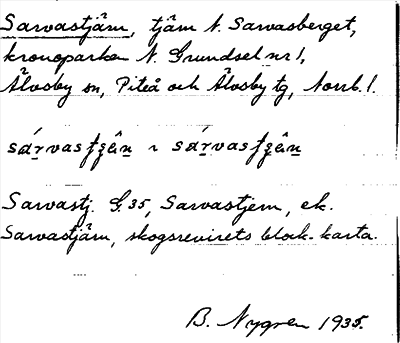 Sarvastjärn, tjärn N. Sarvasberget,
kronoparken N. Grundsel nr 1,
Älvsby sn, Piteå och Älvsby tg, Norrb. l.
Sarvastj. G. 35, Sarvastjern, ek.
Sarvastjärn, skogsrevirets block-karta.
B. Nygren 1935.